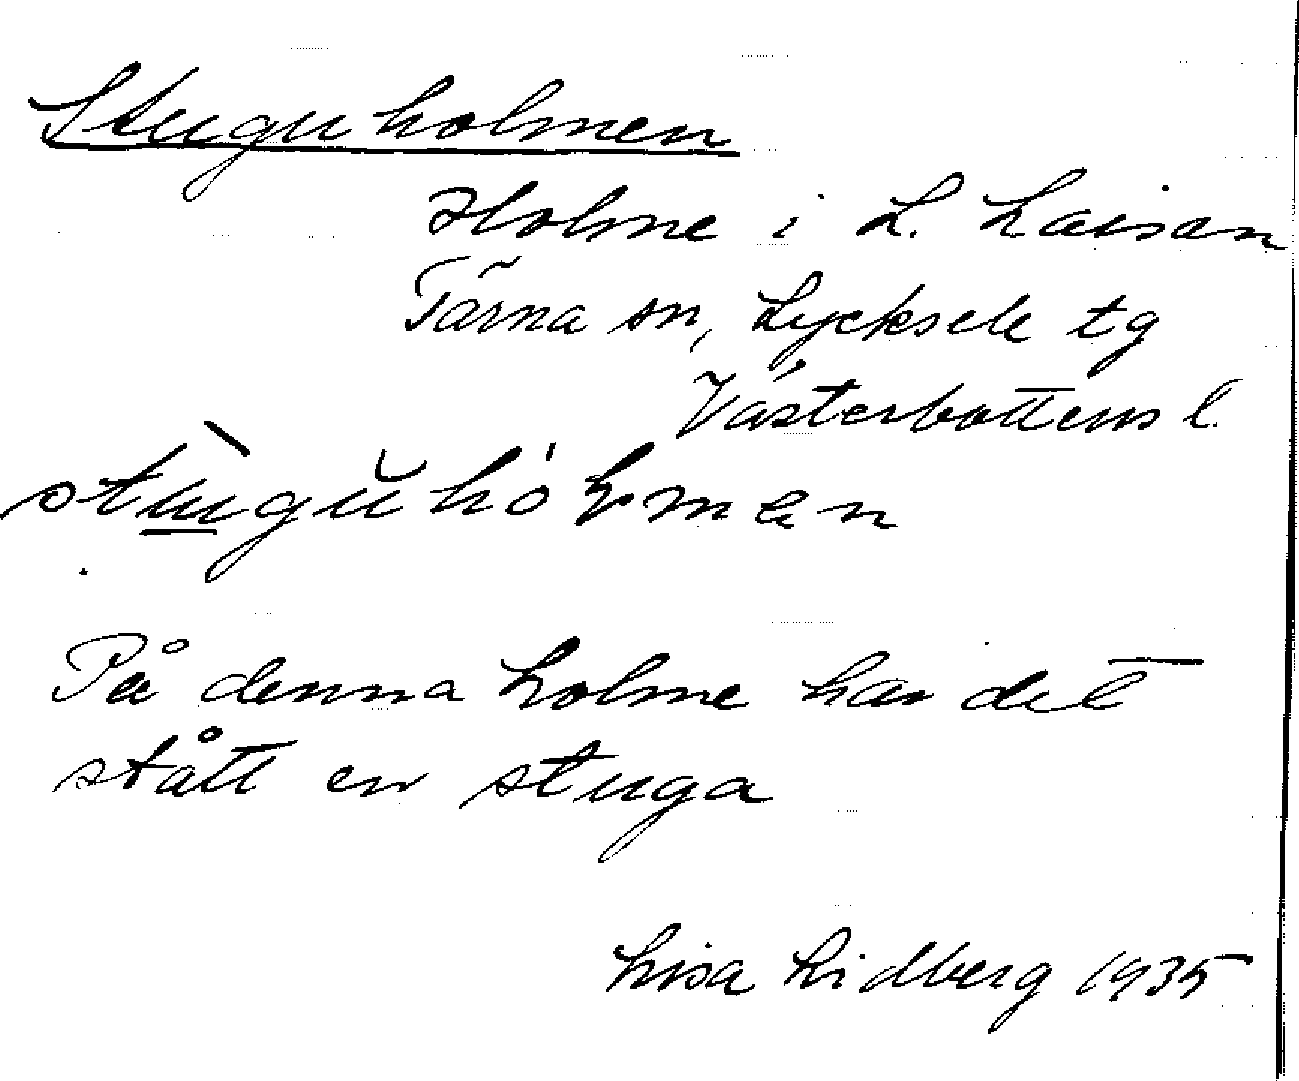 Stuguholmen
Holme i L. Laisan
Tärna sn, Lycksele tg
Västerbottens l.
På denna holme har det
stått en stuga
Lisa Lidberg 1935